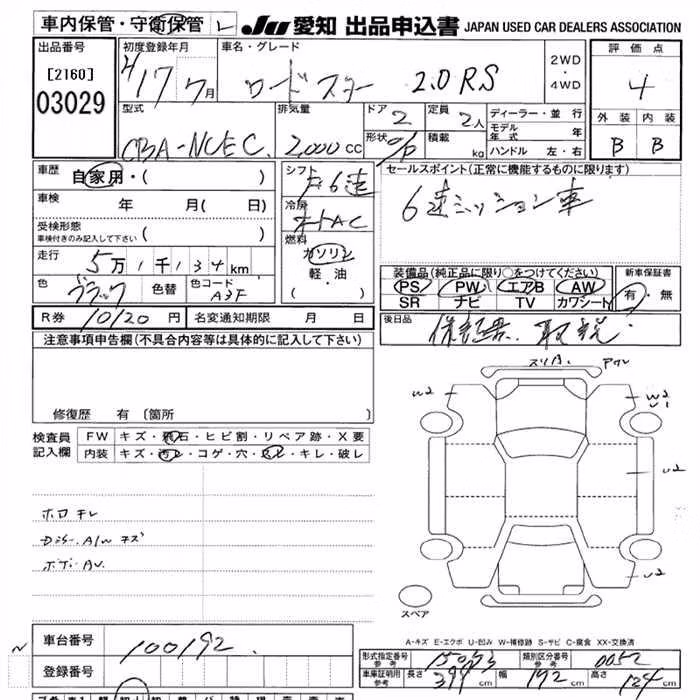 車内保管・守衛保管 レ JU 愛知 出品申込書 JAPAN USED CAR DEALERS ASSOCIATION
出品番号 初度登録年月 車名・グレード 2WD・4WD 評価点
[2160] H17 7月 ロードスター 2.0 RS 4
03029
型式 排気量 ドア 2 定員 2人 ディーラー・並行 外装 内装
CBA-NCEC 2,000 CC 形状 O/P 積載 kg モデル年式 年 B B
ハンドル 左・右
車歴 自家用・( ) シフト F6速 セールスポイント(正常に機能するものに限ります)
車検 年 月( 日) 冷房 オートAC 6速ミッション車
受検形態 車検付きのみ記入して下さい ( ) 燃料
走行 5万1千134km ガソリン 軽・油 ・( )
装備品(純正品に限り○をつけてください) 新車保証書
色 ブラック 色替 色コード A3F PS PW エアB AW 有・無
SR ナビ TV カワシート
R券 10120円 名変通知期限 月 日 後日品 保証書. 取説
注意事項申告欄(不具合内容等は具体的に記入して下さい)
スリ有. アワレ
W2 W2 U1
修復歴 有 〔箇所 〕
検査員記入欄 FW キズ・飛石・ヒビ割・リペア跡・X要
内装 キズ・汚レ・コゲ・穴・スレ・キレ・破レ
U2
ホロ キレ
AW キズ
U2
スペア
A-キズ E-エクボ U-凹み W-補修跡 S-サビ C-腐食 XX-交換済
車台番号 100192
形式指定番号 参考 15073 類別区分番号 参考 0052
登録番号
車庫証明用 参考 長さ 399cm 幅 172cm 高さ 124cm